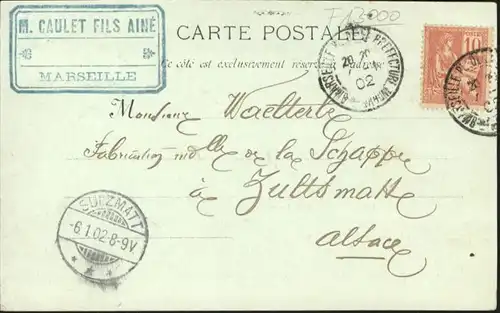 M. CAULET FILS AINÉ
MARSEILLE
CARTE POSTALE
Ce côté est exclusivement réservé
10
MARSEILLE
PREFECTURE
02
Monsieur Waelterlé
Fabrication
de la Schappe
à Zultsmatt
Alsace
SULZMATT
-6.1.02 8-9V